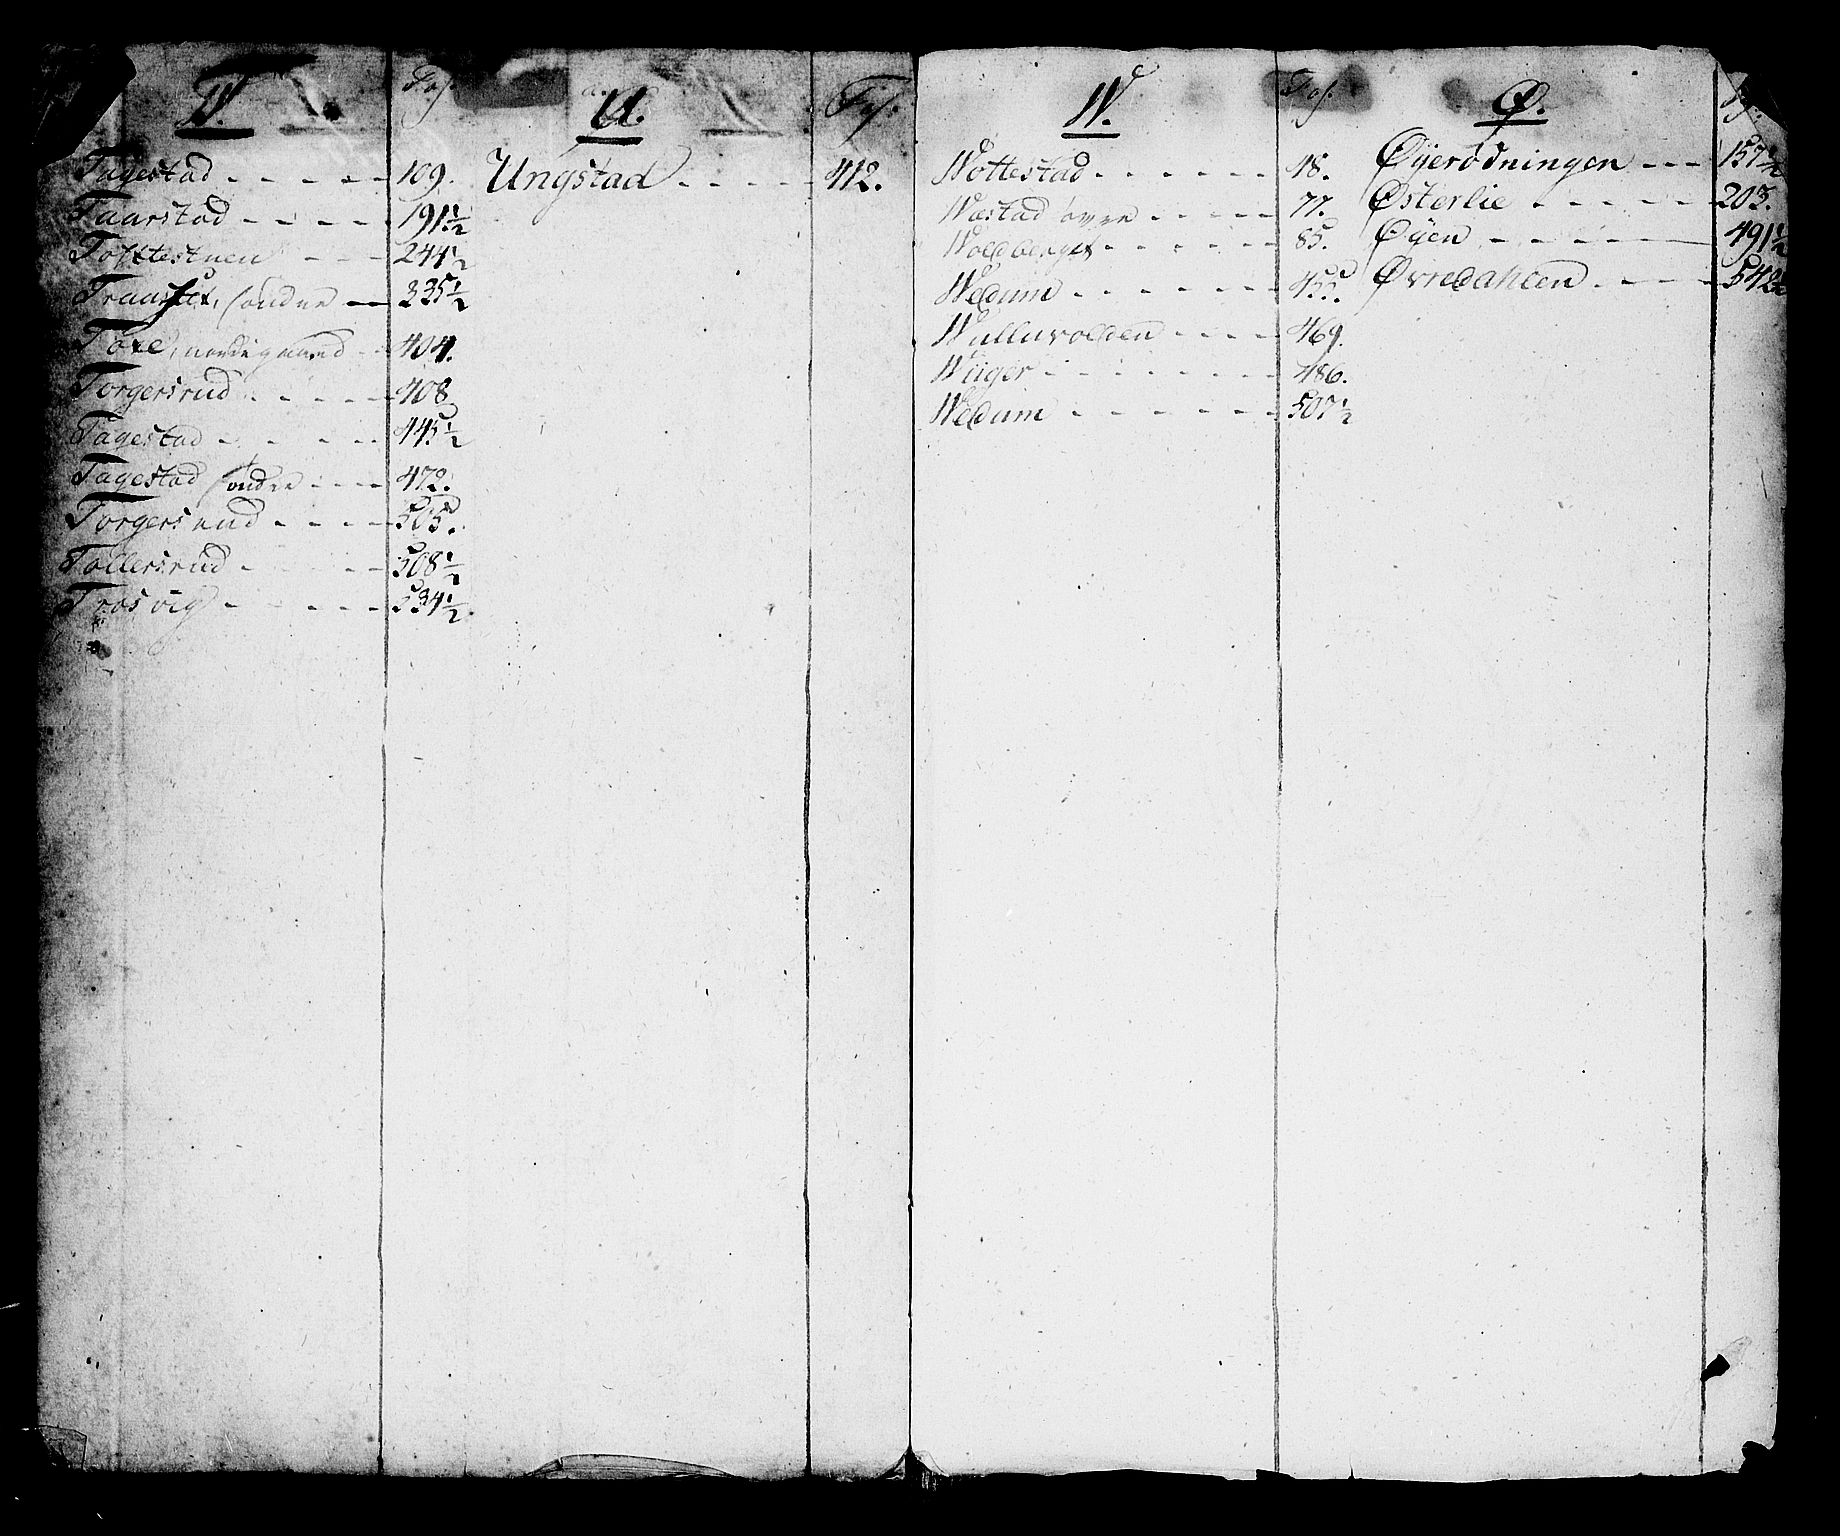 T. Fol:
Tagestad - - - - - 109.
Taarstad - - - - 191 1/2
Toftestuen - - - 244 1/2
Traaset, søndre - 335 1/2
Tore, nordigaard - 404.
Torgersrud - - - - 408
Tagestad - - - - 445 1/2
Tagestad søndre - - - 472.
Torgersrud - - - - 505.
Tollersrud - - - - 508 1/2
Trosvig - - - - - 534 1/2.
U. Fol:
Ungstad - - - - - 412.
W. Fol:
Wottestad - - - - - - 48.
Wæstad øvre - - - - 77.
Woldberget - - - - - 85.
Wedum - - - - - - 455.
Wulluvolden - - - - 469.
Wiiger - - - - - - - 486.
Wedum - - - - - - 507 1/2
Ø. Fol:
Øyerødningen - - - 157 1/2
Østerlie - - - - - 203.
Øyen - - - - - 491 1/2
Øvredahlen - - - - 542 1/2